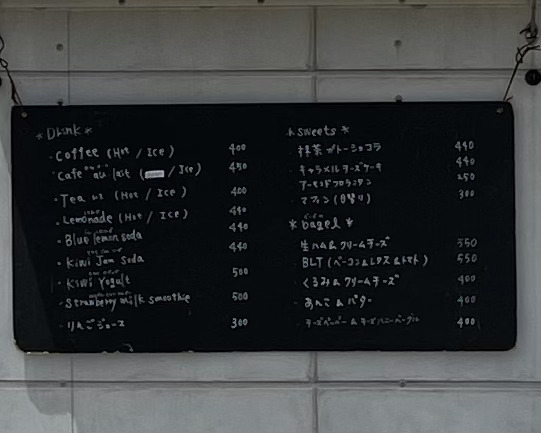 *Drink*
・Coffee (Hot / Ice) 400
・Cafe au lait ( / Ice) 450
・Tea (Hot / Ice) 400
・Lemonade (Hot / Ice) 440
・Blue lemon soda 440
・Kiwi Jam Soda 440
・Kiwi Yogult 500
・Strawberry milk smoothie 500
・りんごジュース 300
*sweets*
抹茶ガトーショコラ 440
キャラメルチーズケーキ 440
アーモンドフロランタン 250
マフィン(日替り) 300
*bagel*
生ハム&クリームチーズ 550
BLT(ベーコン&レタス&トマト) 550
くるみ&クリームチーズ 400
あんこ&バター 400
チーズペッパー&チーズハニーベーグル 400